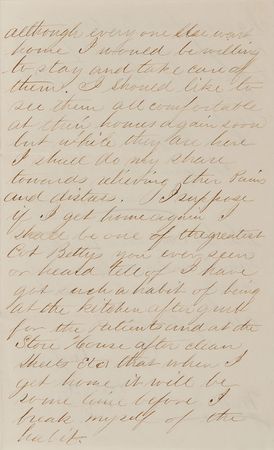 although every one else went
home I would be willing
to stay and take care of
them. I should like to
see them all comfortable
at their homes again soon
but while they are here
I shall do my share
towards relieving their Pain
and distress. I suppose
if I get home again I
shall be one of the greatest
Cot Bettys you ever seen
or heard tell of I have
got such a habit of being
at the kitchen after grub
for the Patients and at the
Store House after clean
Sheets &c that when I
get home it will be
some time before I
break myself of the
habit.